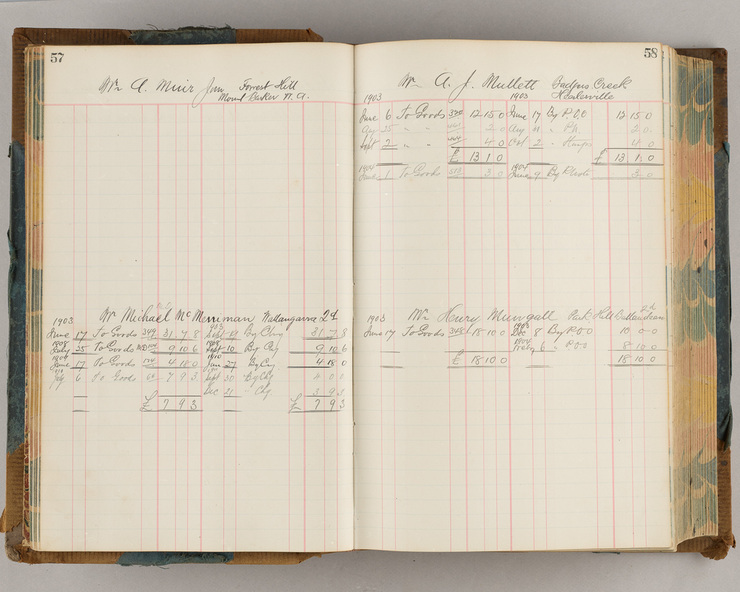 57
Mr A. Muir Jun Forrest Hill
Mount Barker W.A.
1903
Mr Michael McMerriman Wallangarra Qd
June 17 To Goods 349 31 7 8 10 By Chq 31 7 8
1908 1908
July 25 To Goods 9 10 6 Sept 10 By Chq 9 10 6
1909 1910
June 17 To Goods 4 18 0 Jan 27 By Chq 4 18 0
6 To Goods 7 9 3 Sept 30 By Chq 4 0 0
Dec 21 Chq 3 9 3
£ 7 9 3 £ 7 9 3
58
Mr A. J. Mullett Gadfrs Creek
Healesville
1903 1903
June 6 To Goods 340 12 15 0 June 17 By P.O.O 12 15 0
Aug 25 " " 2 0 Aug 31 " P.N. 2 0
Sept 2 " " 4 0 Oct 2 " Stamps 4 0
£ 13 1 0 £ 13 1 0
1904 1904
June 1 To Goods 3 0 June 9 By P Note 3 0
1903 Mr Henry Mungall Park Hill
June 17 To Goods 348 18 10 0 1903 Dec 8 By P.O.O 10 0 0
1904
6 " P.O.O 8 10 0
£ 18 10 0 18 10 0